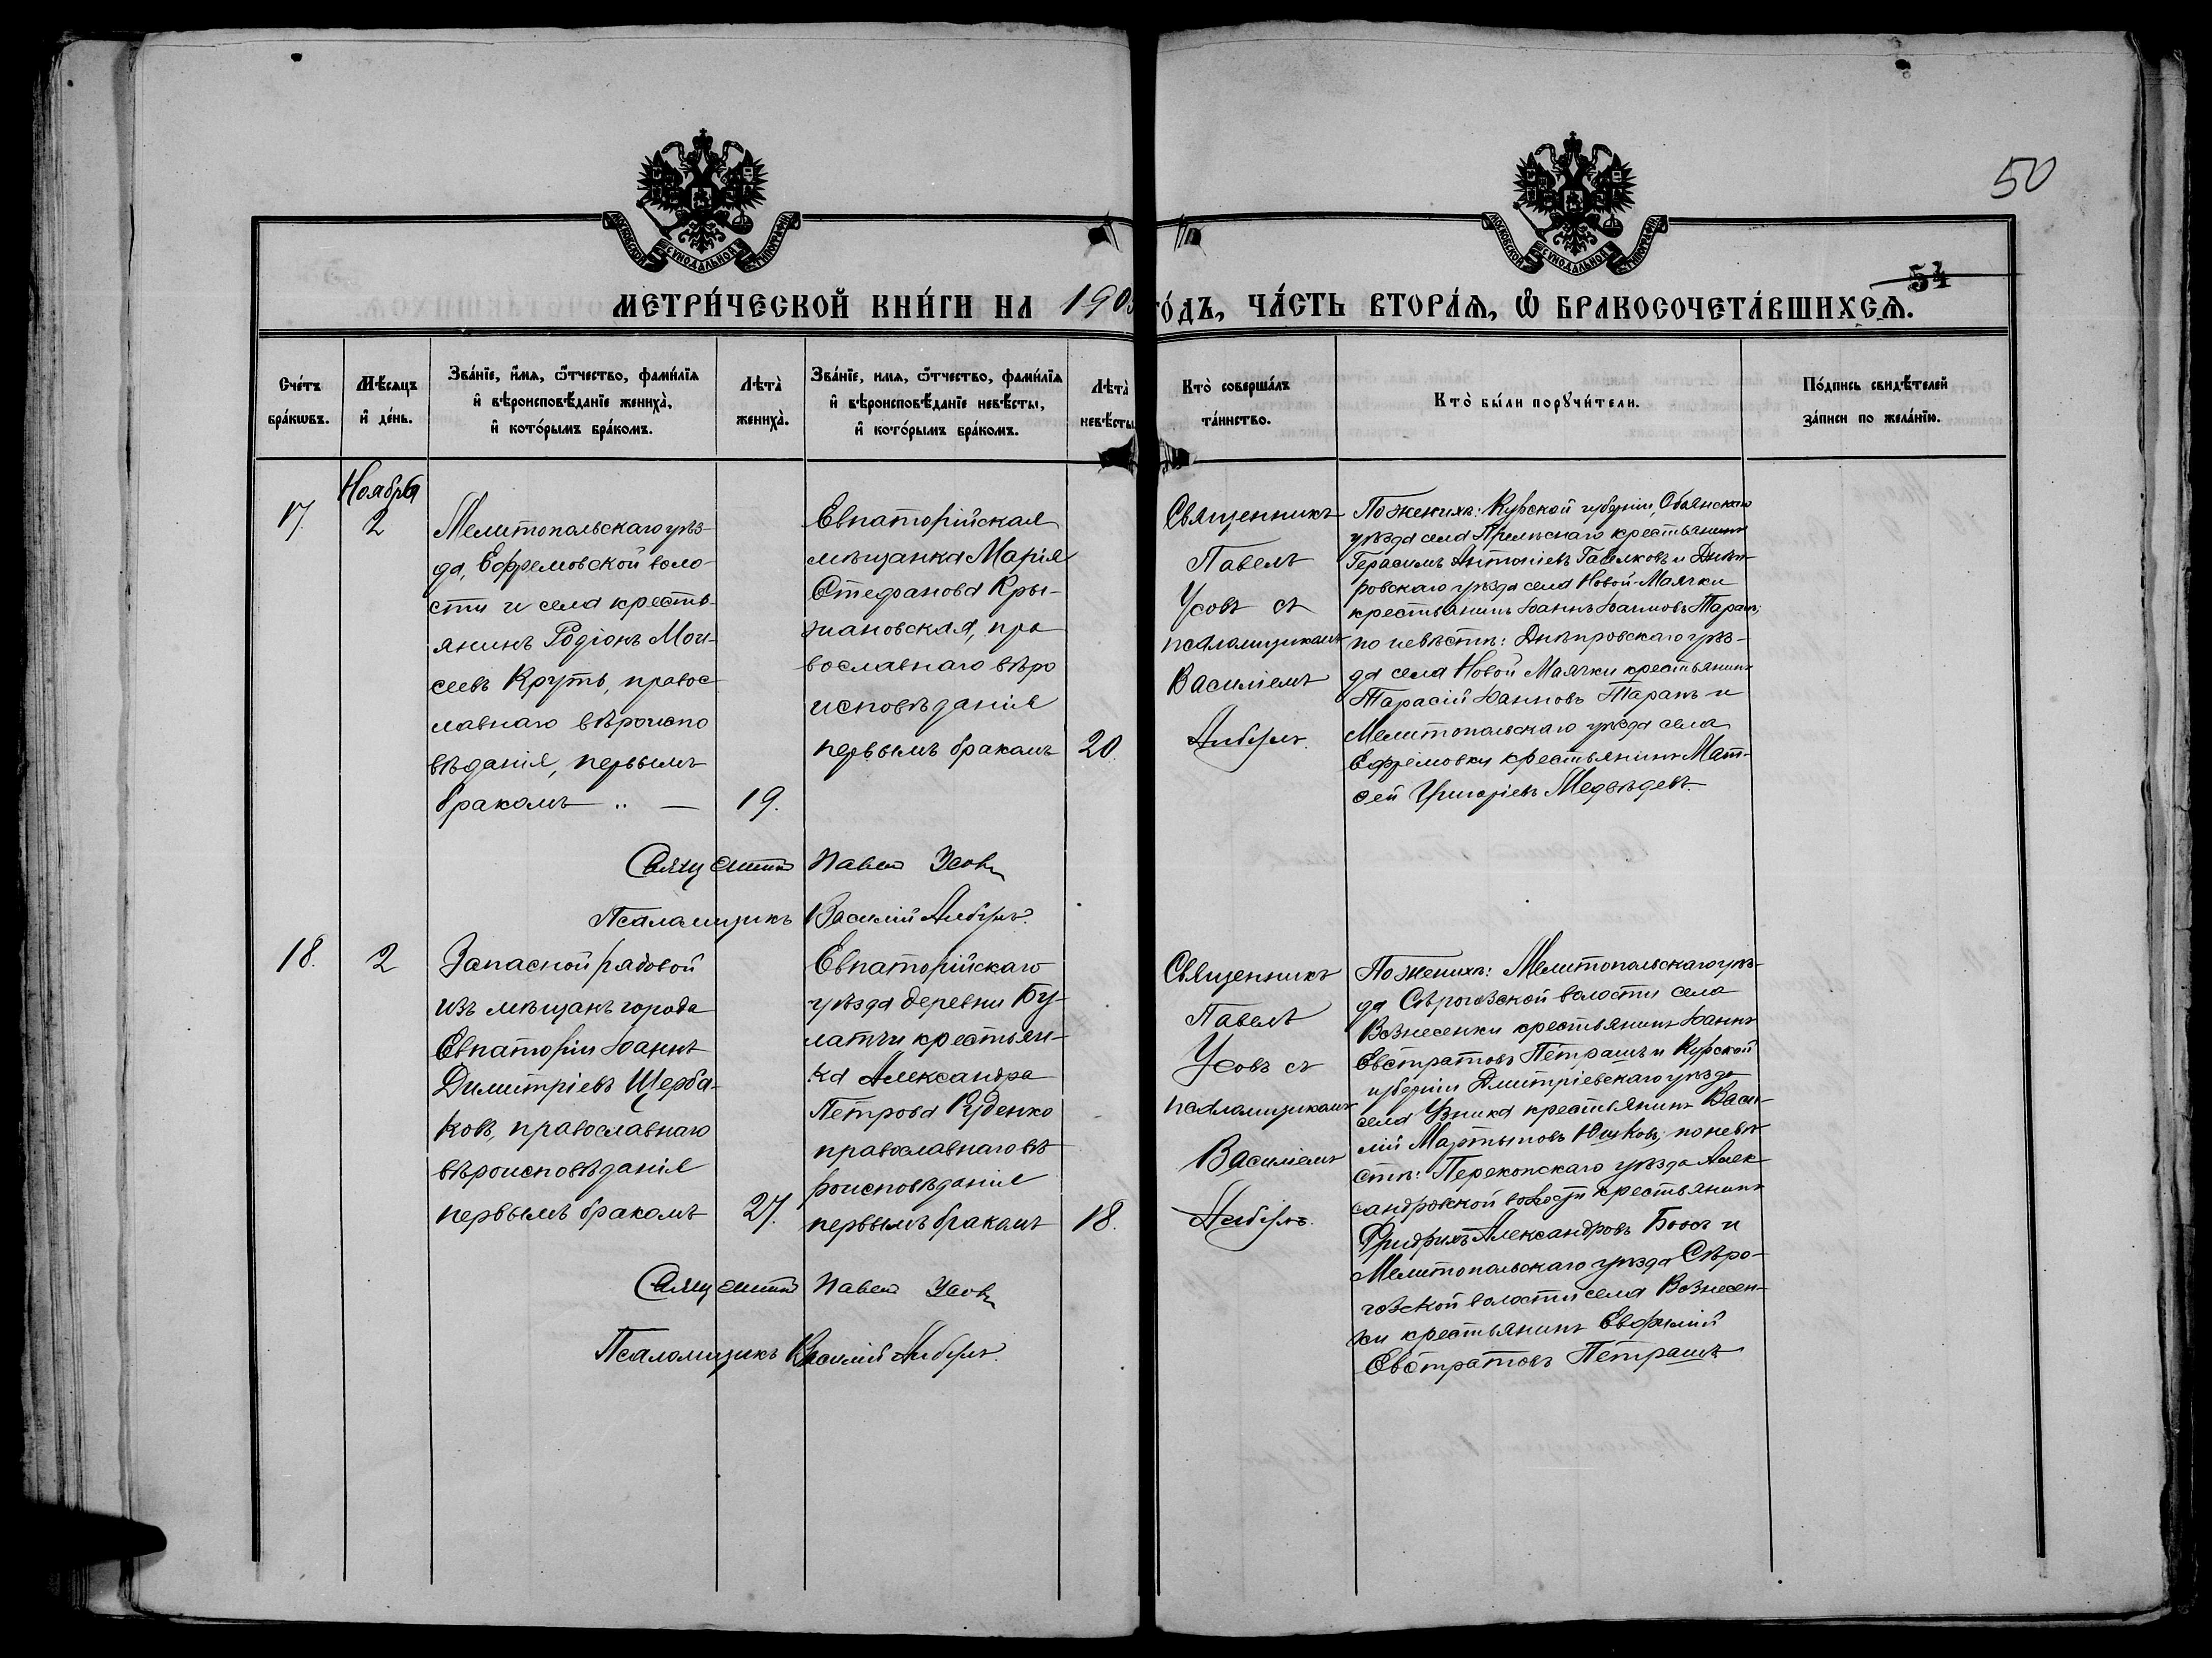 50
54
МОСКОВСКОЙ СѴНОДАЛЬНОЙ ТИПОГРАФІИ
МОСКОВСКОЙ СѴНОДАЛЬНОЙ ТИПОГРАФІИ
МЕТРИ́ЧЕСКОЙ КНИ́ГИ НА 190
ГО́ДЪ, ЧА́СТЬ ВТОРА́Ѧ, Ѽ БРАКОСОЧЕТА́ВШИХСѦ.
Сче́тъ бра́кѡвъ.
Мѣ́сяцъ и҆ де́нь.
Зва́нїе, и҆́мѧ, ѻ҆́тчество, фами́лїѧ
и҆ вѣроисповѣ́данїе жениха̀,
и҆ кото́рымъ бра́комъ.
Лѣта̀ жениха̀.
Зва́нїе, имѧ, ѻ҆́тчество, фами́лїѧ
и҆ вѣроисповѣ́данїе невѣ́сты,
и҆ кото́рымъ бра́комъ.
Лѣта̀ невѣ́сты
Кто̀ соверша́лъ та́инство.
Кто̀ бы́ли порꙋчи́тели.
По́дпись свидѣ́телей за́писи по жела́нїю.
17.
Ноября
2
Мелитопольскаго уѣз-
да, Ефремовской воло-
сти и села кресть-
янинъ Родіонъ Мои-
сеевъ Круть, правос
лавнаго вѣроиспо
вѣданія, первымъ
бракомъ „ —
19.
Евпаторійская
мѣщанка Марія
Стефанова Кры-
жановская, пра
вославнаго вѣро
исповѣданія
первымъ бракомъ
20.
Священникъ
Павелъ
Усовъ съ
псаломщикомъ
Василіемъ
По женихѣ: Курской губерніи, Обоянскаго
уѣзда села крестьянинъ
Герасимъ Антоніевъ Гавилковъ и Днѣп-
ровскаго уѣзда села Новой-Маячки
крестьянинъ Іоаннъ Іоанновъ Таранъ;
по невѣстѣ: Днѣпровскаго уѣз-
да села Новой Маячки крестьянинъ
Тарасій Іоанновъ Таранъ и
Мелитопольскаго уѣзда села
Ефремовки крестьянинъ Мат-
ѳей Григоріевъ Медвѣдевъ.
Священникъ Павелъ Усовъ
Псаломщикъ Василій
18.
2
Запасной рядовой
изъ мѣщанъ города
Евпаторіи Іоаннъ
Димитріевъ Щерба-
ковъ, православнаго
вѣроисповѣданія
первымъ бракомъ
27.
Евпаторійскаго
уѣзда деревни Бу-
латчи крестьян-
ка Александра
Петрова Руденко
православнаго вѣ
роисповѣданія
первымъ бракомъ
18.
Священникъ
Павелъ
Усовъ съ
псаломщикомъ
Василіемъ
По женихѣ: Мелитопольскаго уѣз-
да Сѣрогозской волости села
Вознесенки крестьянинъ Іоаннъ
Евстратовъ Петрашъ и Курской
губерніи Дмитріевскаго уѣзда
села крестьянинъ Васи-
лій Мартыновъ Юшковъ; по невѣ
стѣ: Перекопскаго уѣзда Алек-
сандровской волости крестьянинъ
Фридрихъ Александровъ и
Мелитопольскаго уѣзда Сѣро-
гозской волости села Вознесен-
ки крестьянинъ Евфимій
Евстратовъ Петрашъ
Священникъ Павелъ Усовъ
Псаломщикъ Василій